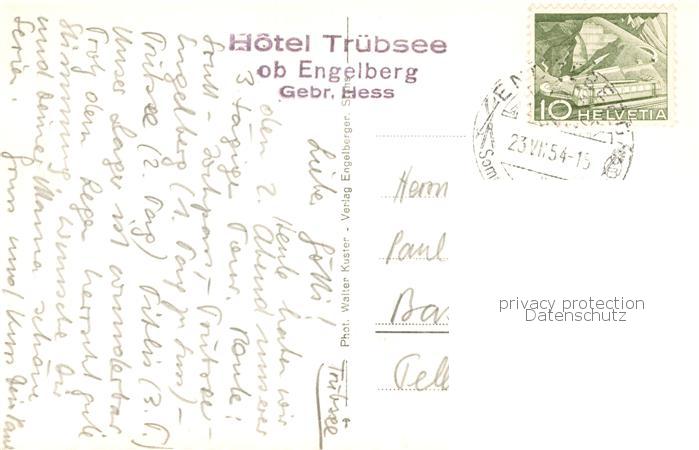 Hôtel Trübsee
ob Engelberg
Gebr. Hess
HELVETIA
10
23.VII.54-15
Phot. Walter Küster - Verlag Engelberger,
Trübsee
Liebe Götti!
Heute haben wir
den 2. Abend unserer
3 tägige Tour. Route:
Jochpass - Trübsee -
Engelberg (1. Tag zu Fuss) -
Trübsee (2. Tag) Titlis (3. T.)
Unser Lager ist wunderbar
Troz dem Regen herrscht gute
Stimmung. Wünsche Dir
und deiner Mama schöne
Ferien.
Gruss und Kuss dein
Herrn
Paul
Ba
Tell
privacy protection
Datenschutz